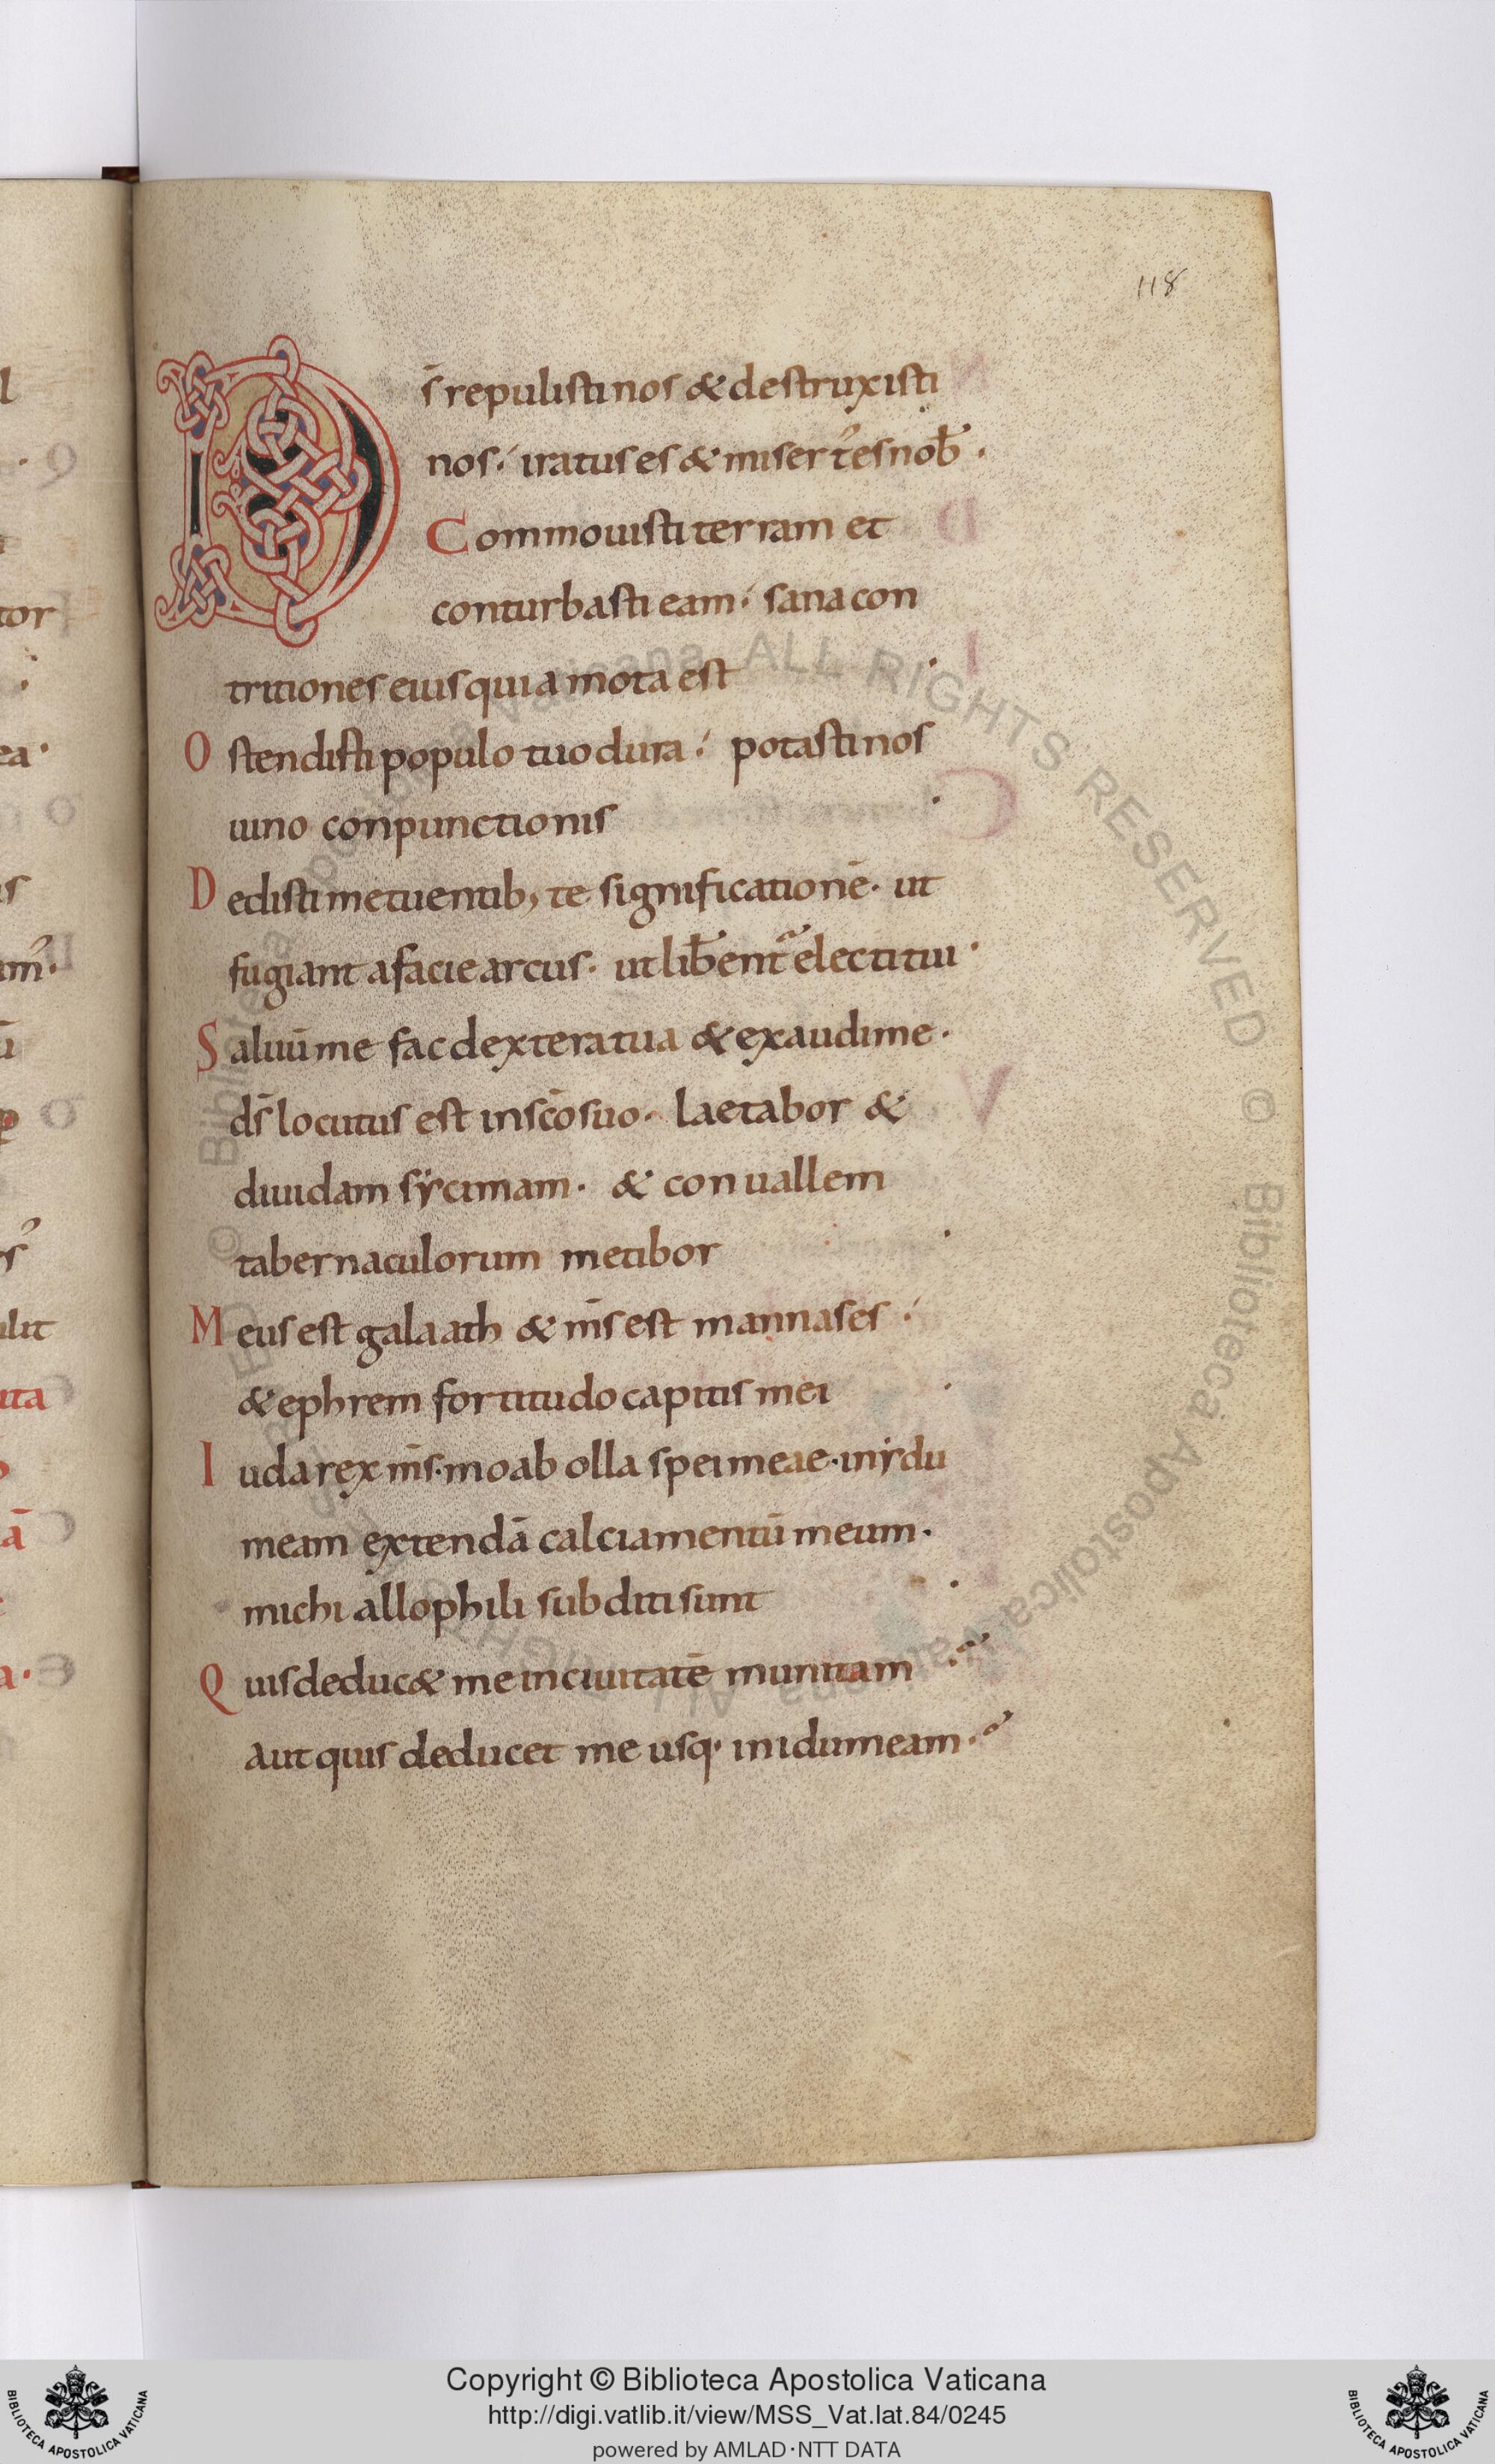 118
Ds̄ repulisti nos & destruxisti
nos·́ iratus es & misert᾽es nob̄ ·
Commouisti terram et
conturbasti eam·́ sana con
tritiones eius quia mota est ·
Ostendisti populo tuo dura·́ potasti nos
uino conpunctionis ·
Dedisti metuentib; te significationē· ut
fugiant a facie arcus· ut lib̄ent᷑ electi tui ·
Saluū me fac dextera tua & exaudi me·
ds̄ locutus est in sc̄o suo· laetabor &
diuidam sẏcimam· & conuallem
tabernaculorum metibor ·
Meus est galaath & ms̄ est mannases ·́
& ephrem fortitudo capitis mei ·
Iuda rex ms̄· moab olla spei meae· in ẏdu
meam extendā calciamentū meum·
michi allophili subditi sunt ·
Quis deduc& me in ciuitatē munitam ·
aut quis deducet me usq· in idumeam·
Copyright © Biblioteca Apostolica Vaticana
http://digi.vatlib.it/view/MSS_Vat.lat.84/0245
powered by AMLAD·NTT DATA
BIBLIOTECA APOSTOLICA VATICANA
BIBLIOTECA APOSTOLICA VATICANA